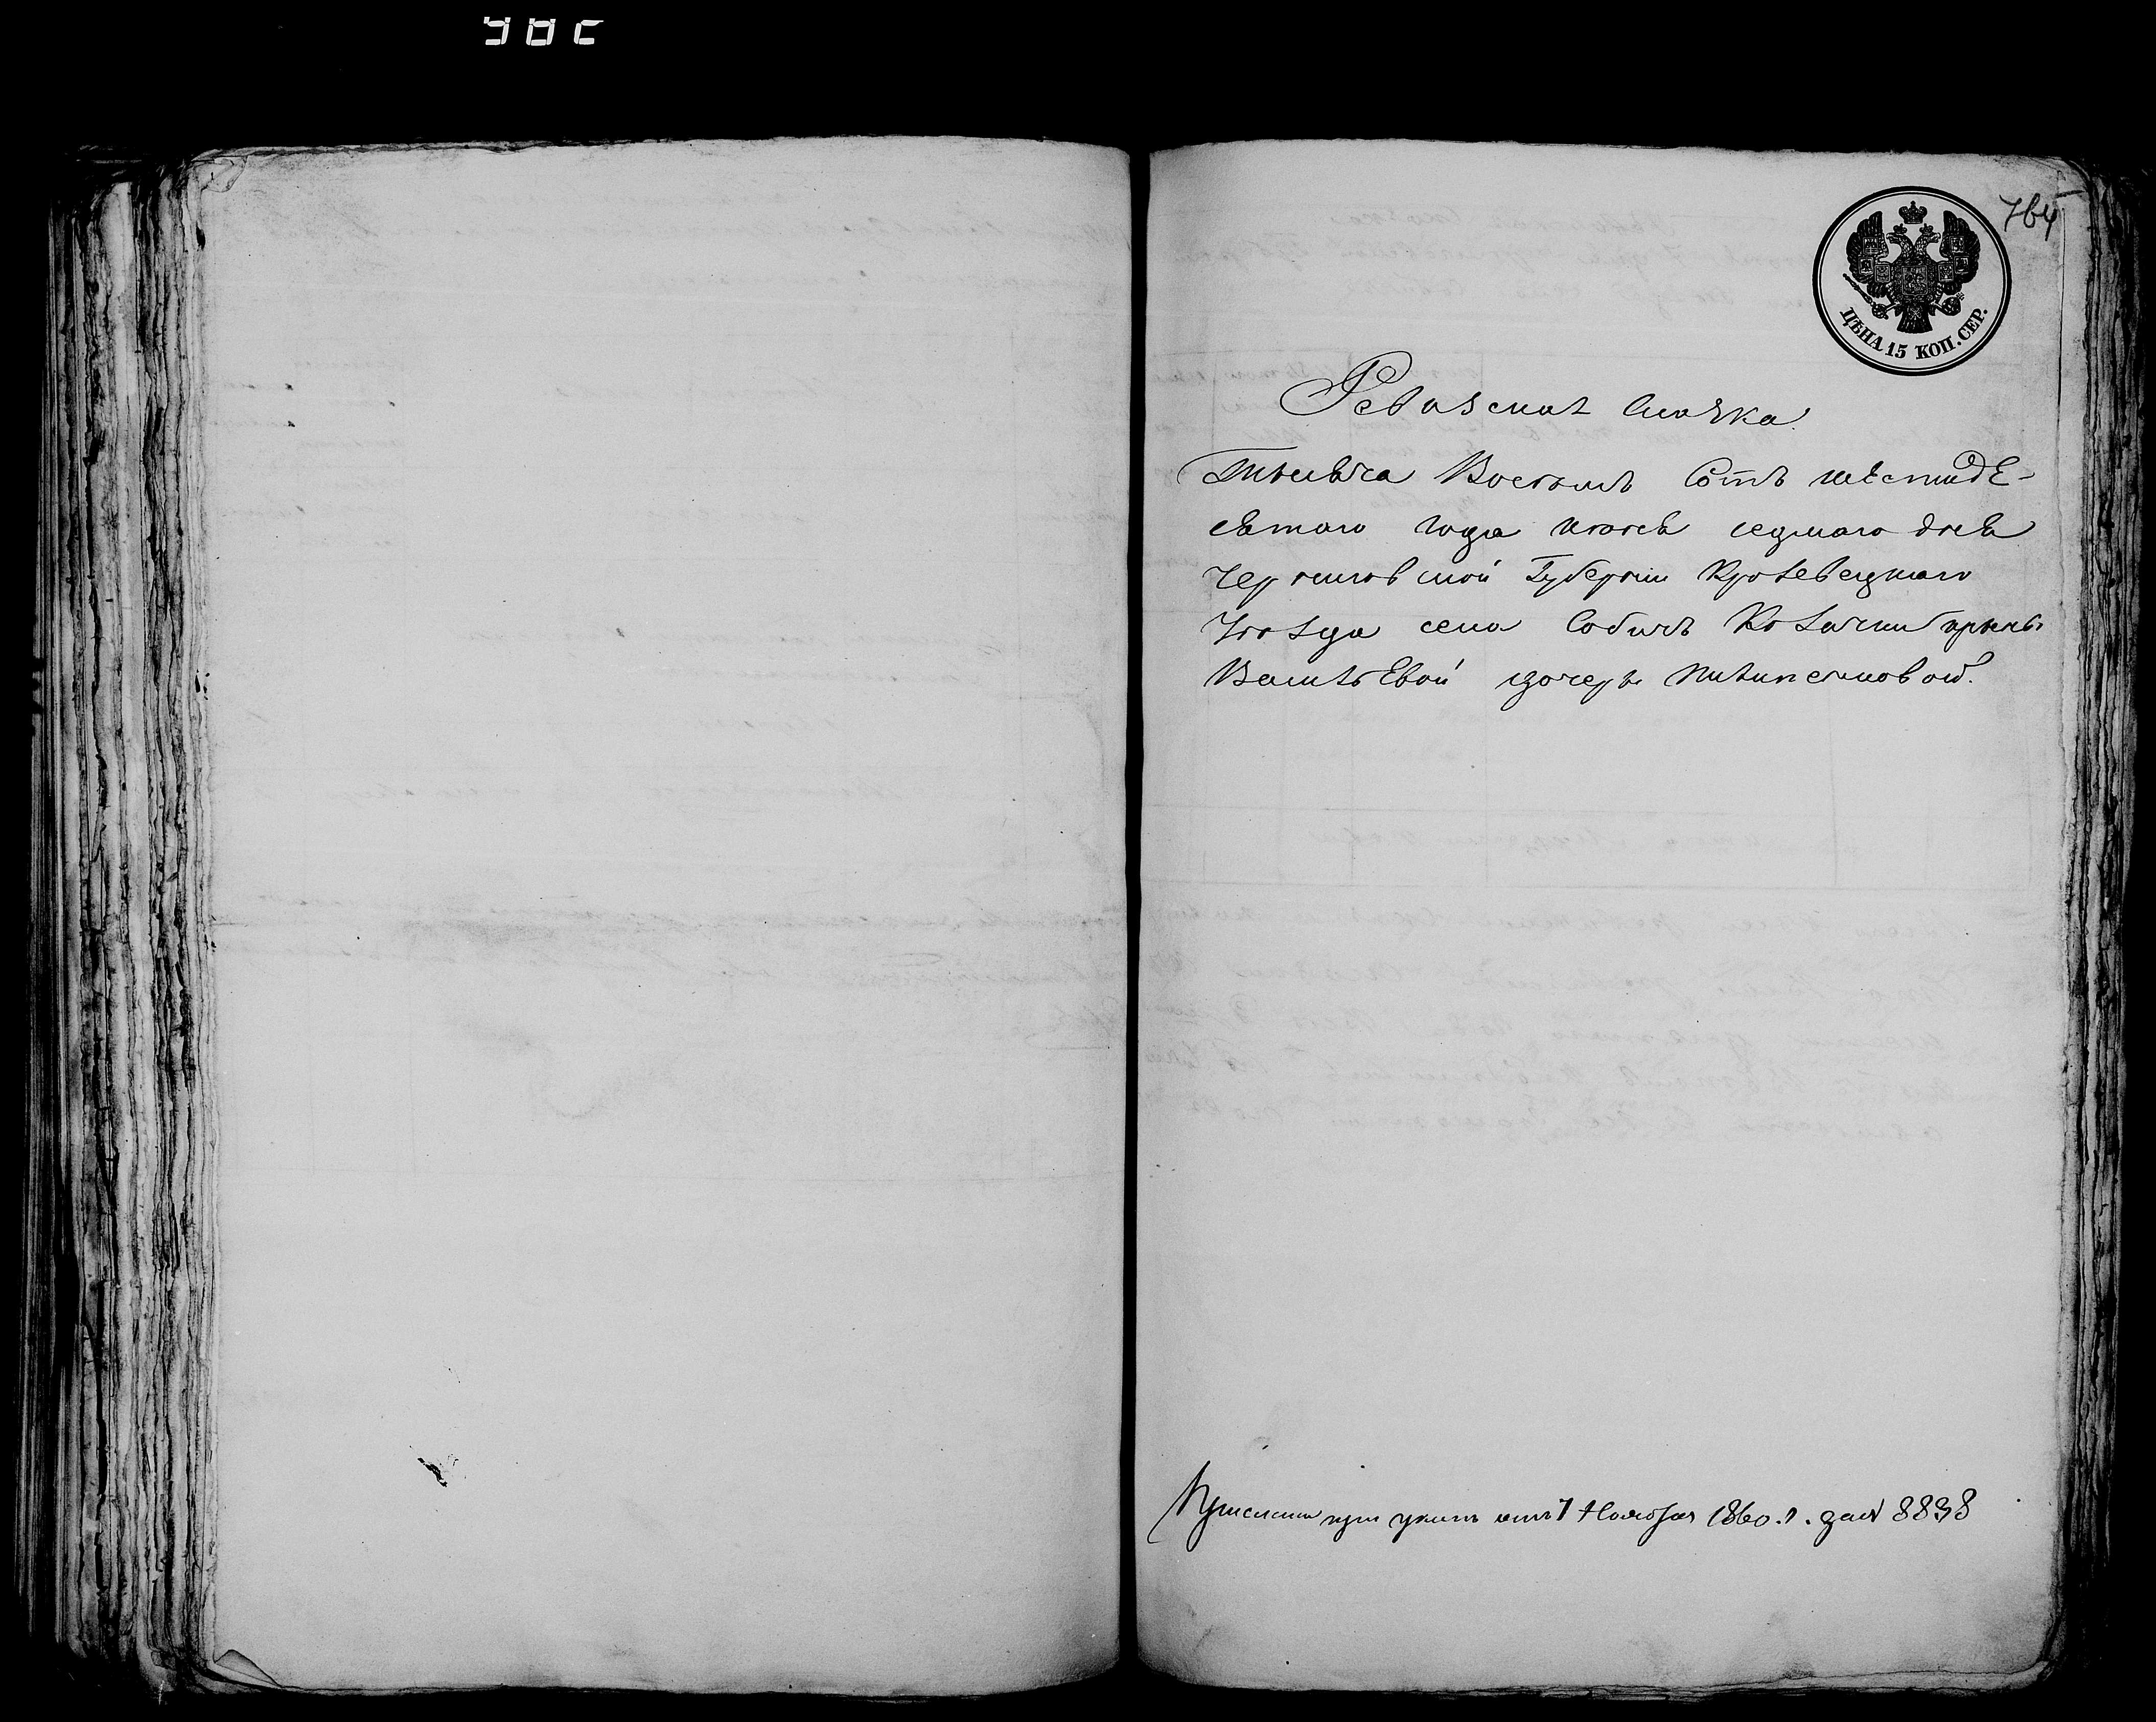 764
ЦѢНА 15 КОП. СЕР.
Ревизская Сказка
Тысяча Восемъ Сотъ шестиде-
сятого года июня седмаго дня
Черниговской Губернии Кролевецкаго
уезда села Собичъ Козачки
Васильевой дочери
при указе от 7 Ноября 1860. г. за № 8838